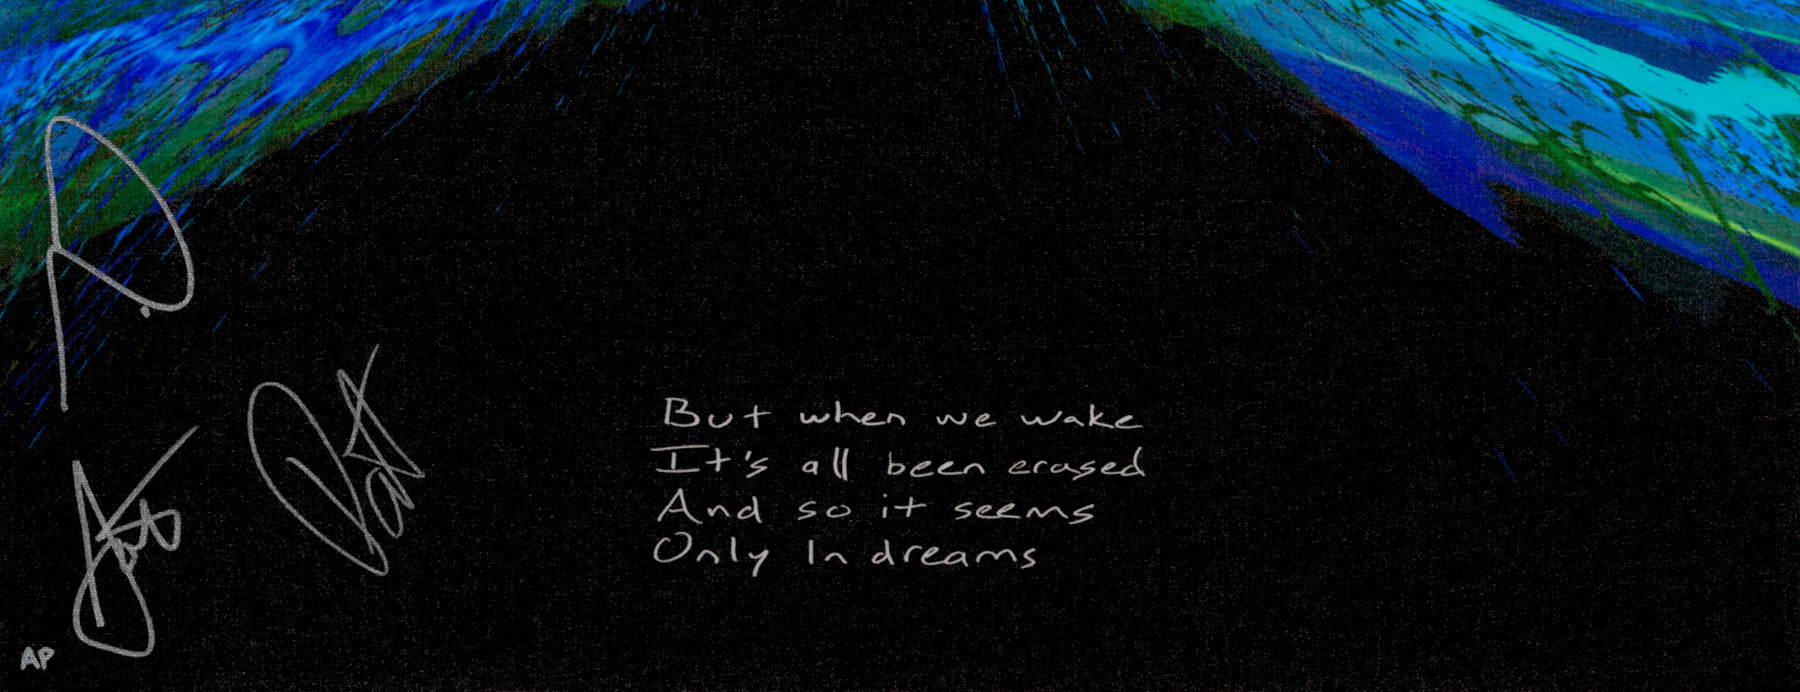 But when we wake
It's all been erased
And so it seems
Only In dreams
AP